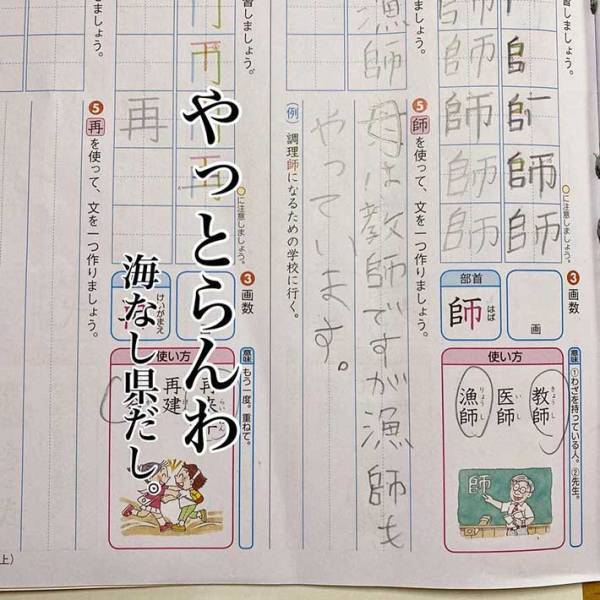 習しましょう。
漁師
○に注意しましょう。
師師師師
3 画数
画
部首
師
はば
使い方
教師
きょうし
医師
いし
漁師
りょうし
意味
①わざを持っている人。②先生。
師
5 師を使って、文を一つ作りましょう。
母は教師ですが漁師も
やっています。
(例)調理師になるための学校に行く。
習しましょう。
○に注意しましょう。
再
3 画数
けいがまえ
使い方
再建
意味
もう一度。重ねて。
5 再を使って、文を一つ作りましょう。
やっとらんわ
海なし県だし。
上)